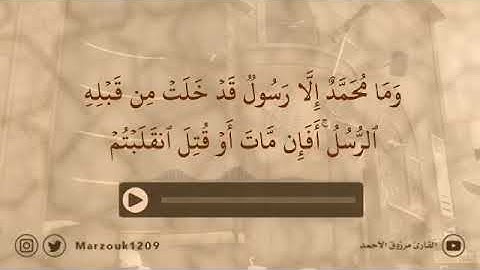 وَمَا مُحَمَّدٌ إِلَّا رَسُولٌ قَدۡ خَلَتۡ مِن قَبۡلِهِ
ٱلرُّسُلُۚ أَفَإِن مَّاتَ أَوۡ قُتِلَ ٱنقَلَبۡتُمۡ
Marzouk1209
القارئ مرزوق الأحمد